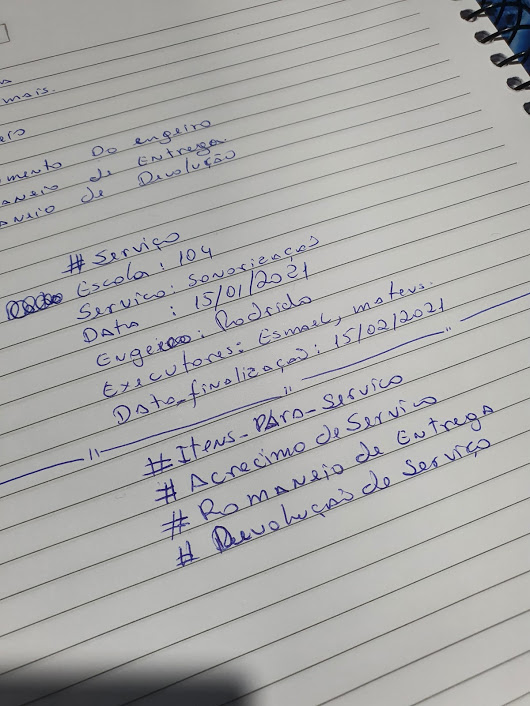 mais.
Do engeiro
de Entrega
de Devolução
# Serviço
Escola: 104
Servico: Sonorizaçaõ
Data : 15/01/2021
: Rodrido
Executores: Esmael, mateus.
Data_finalizaçaõ: 15/02/2021
# Itens_Para_Servico
# Acrecimo de Servico
# Romaneio de Entrega
# Devoluçaõ de Serviço